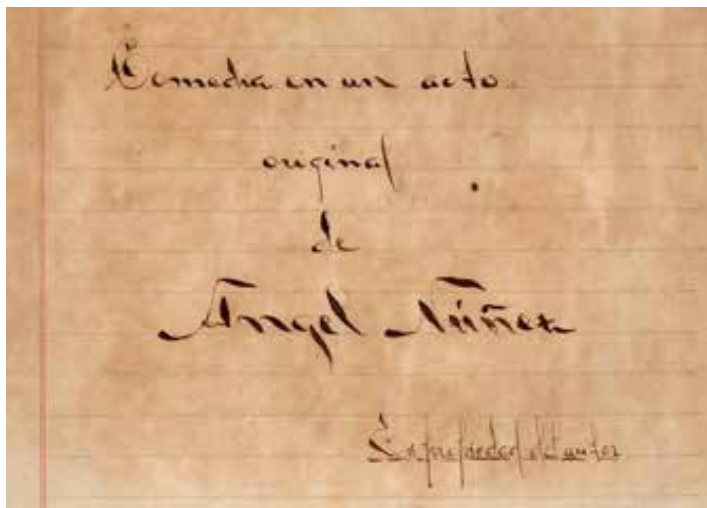 Comedia en un acto
original
de
Ángel Núñez
Es propiedad del autor